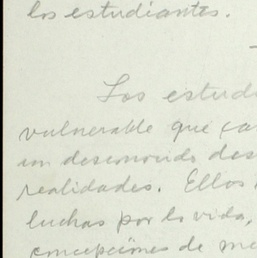 los estudiantes.
Los estudi
vulnerable que
un desconocido des
realidades. Ellos
luchas por la vida,
concepciones de me